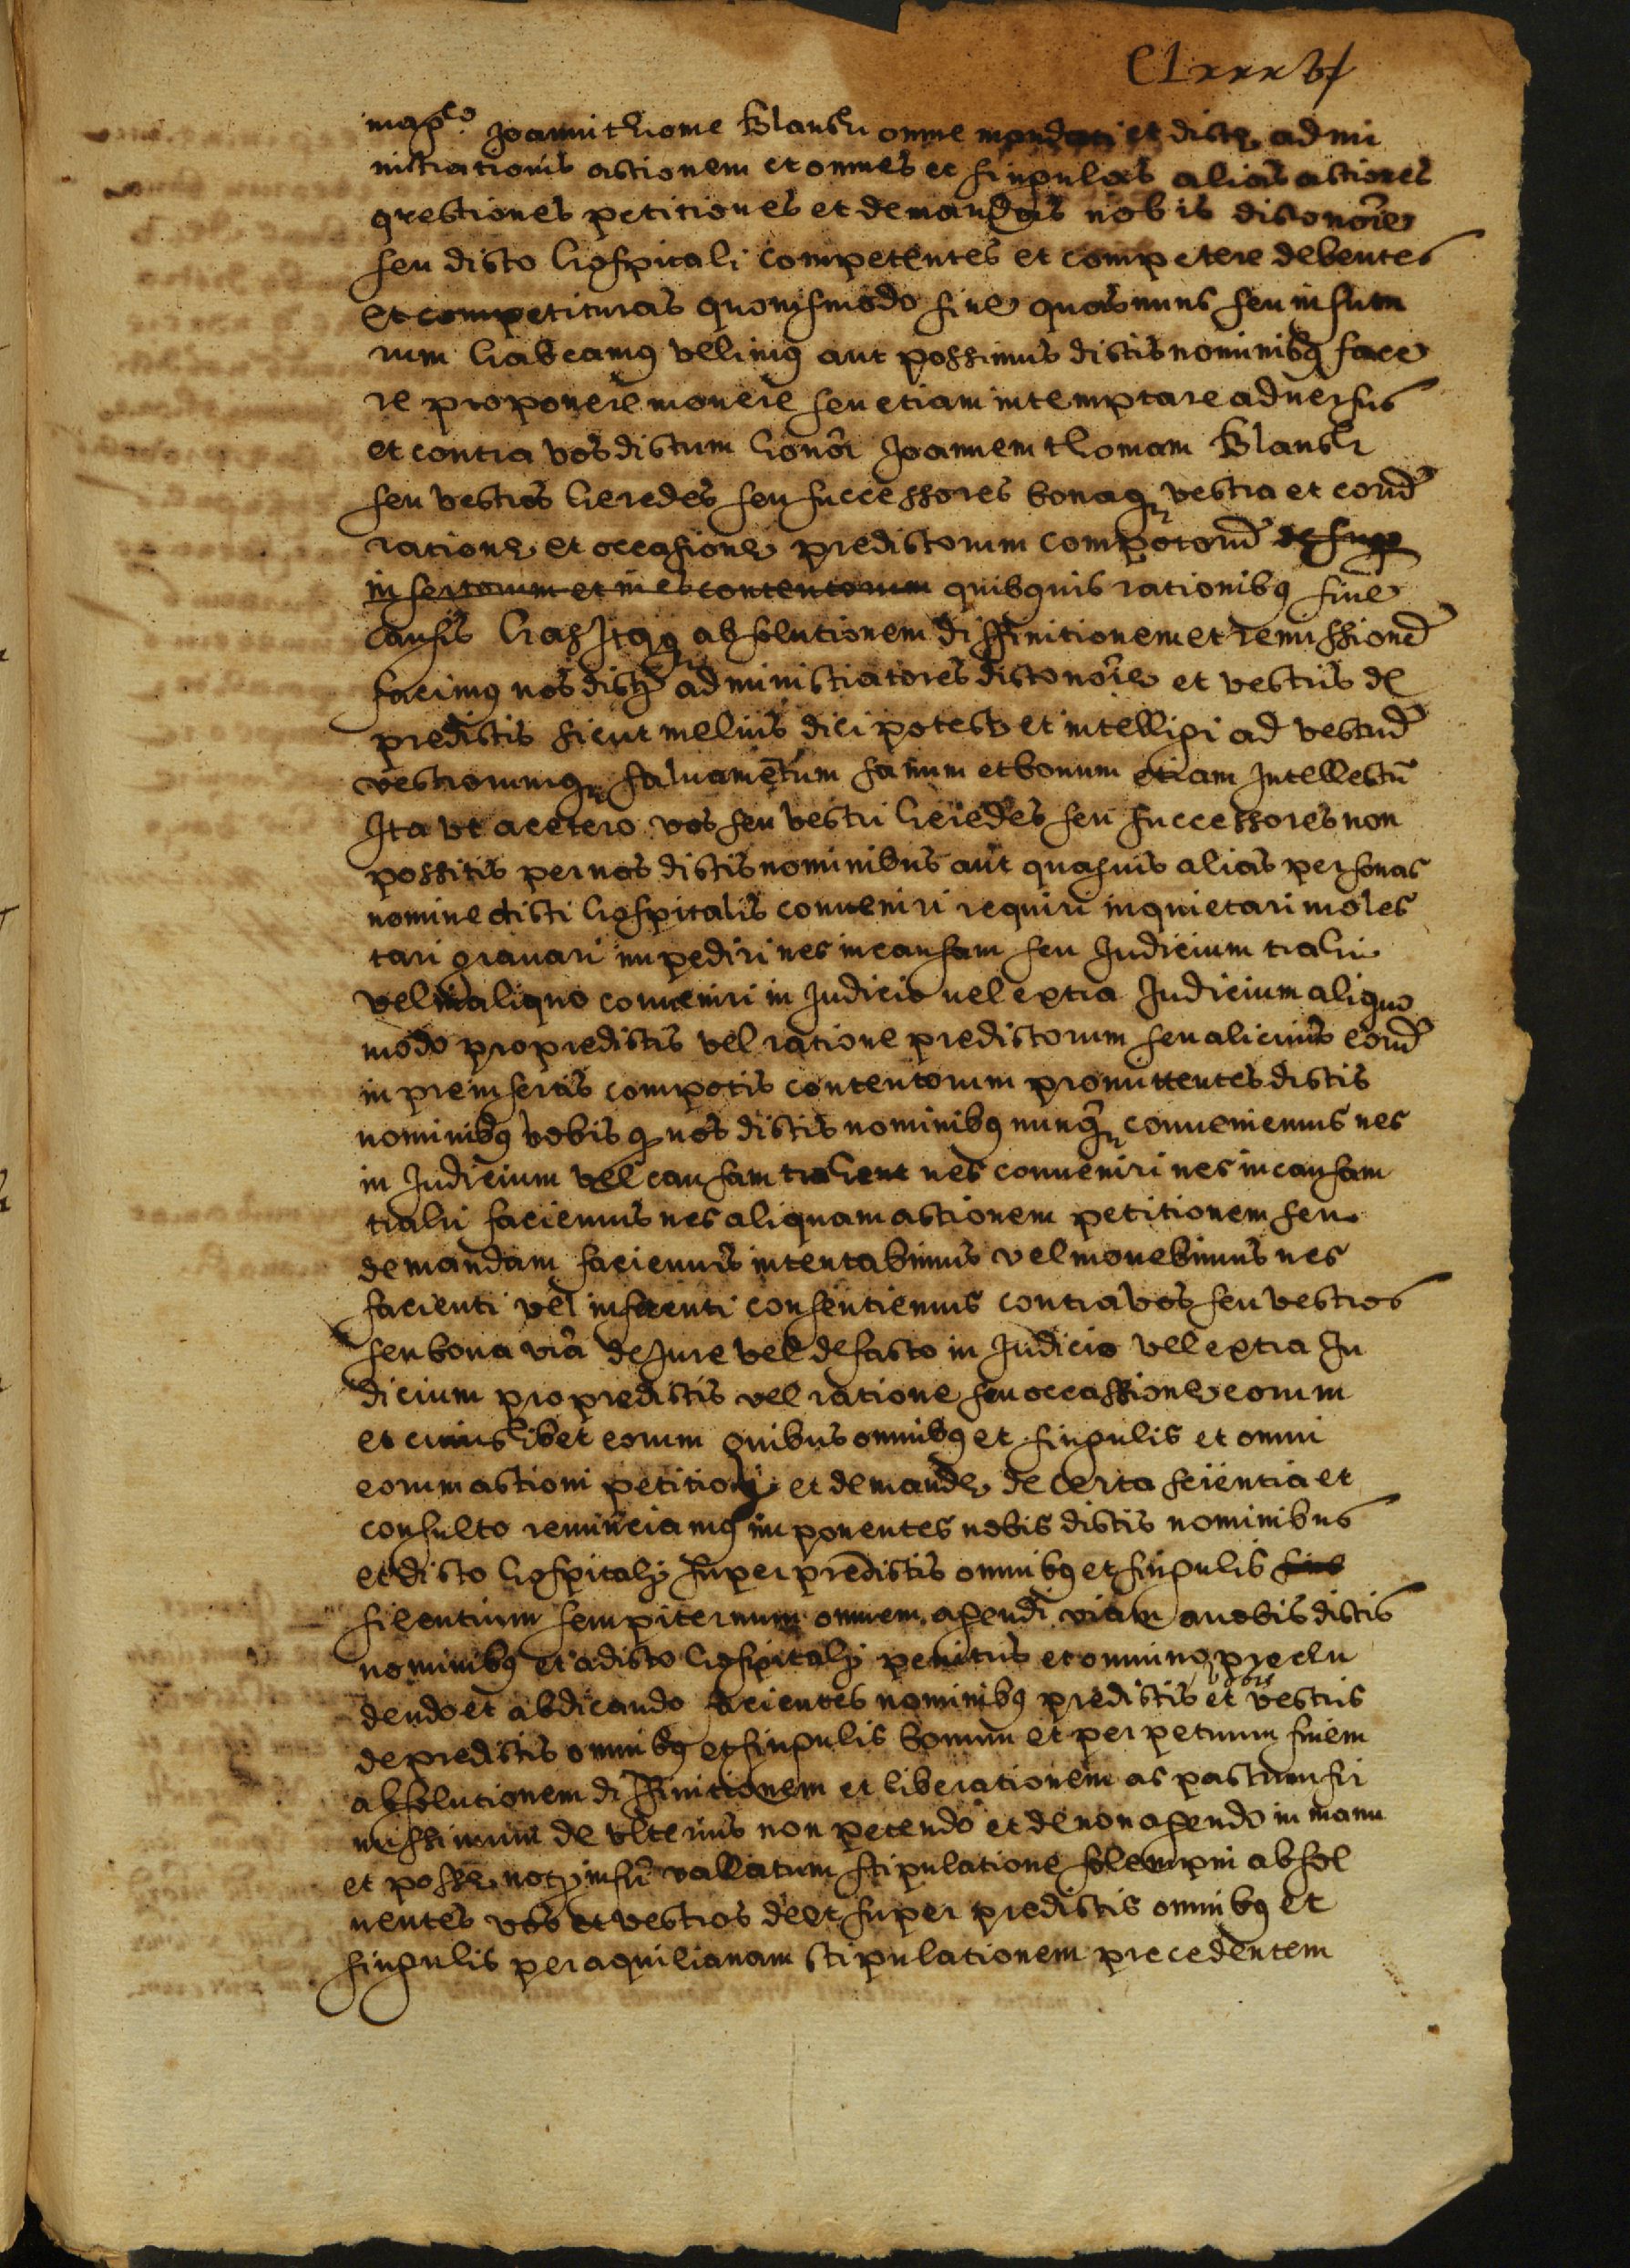 Clxxxvj
mag.co Joanni thome Blanch omne mandati et dicte admi
nistrationis actionem et omnes et singulas alias actiones
questiones petitiones et demandas nobis dicto noīe
seu dicto hospitali competentes et competere debentes
et competituras quovismodo sive quas nunc seu in futu
rum habeamus velimus aut possimus dictis nominibus face
re proponere movere seu etiam intemptare adversus
et contra vos dictum honor Joannem thomam Blanch
seu vestros heredes seu successores bonaq vestra et eorūd
ratione et occasione predictorum compotorū de sup
insertorum et in eis contentorum quibusvis rationibus sive
causis hasItaq absolutionem diffinitionem et remissionē
facimus nos dicti administratores dicto noīe et vestris de
predictis sicut melius dici potest et intelligi ad vestrū
vestrorumq salvamētum sanum et bonum etiam Intellectū
Ita vt acetero vos seu vestri heredes seu successores non
possitis per nos dictis nominibus aut quasuis alias personas
nomine dicti hospitalis conveniri requiri inquietari moles
tari gravari impediri nec in causam seu Judicium trahi
vel in aliquo conveniri in Judicio vel extra Judicium aliquo
modo pro predictis vel ratione predictorum seu alicuius eorūd
in preinsertis compotis contentorum promittentes dictis
nominibus vobis q nos dictis nominibus nunq conveniemus nec
in Judicium vel causam trahent nec conveniri nec in causam
trahi faciemus nec aliquam actionem petitionem seu
demandam faciemus intentabimus vel movebimus nec
facienti vel inferenti consentiemus contra vos seu vestros
seu bona vrā de Jure vel de facto in Judicio vel extra Ju
dicium pro predictis vel ratione seu occassione eorum
et cuiuslibet eorum quibus omnibus et singulis et omni
eorum actioni petitioni et demande de certa scientia et
consulto renunciamus imponentes nobis dictis nominibus
et dicto hospitalj super predictis omnibus et singulis
silentium sempiternum omnem agendi viam a nobis dictis
nominibus et a dicto hospitalj penitus et omnino preclu
dendo et abdicando facientes nominibus predictis vobis et vestris
de predictis omnibus et singulis bonum et perpetuum finem
absolutionem diffinitionem et liberationem ac pactum fir
missimum de vlterius non petendo et de non agendo in manu
et posse notj infrī vallatum stipulatione solempni absol
uentes vos et vestros de et super predictis omnibus et
singulis per aquilianam stipulationem precedentem